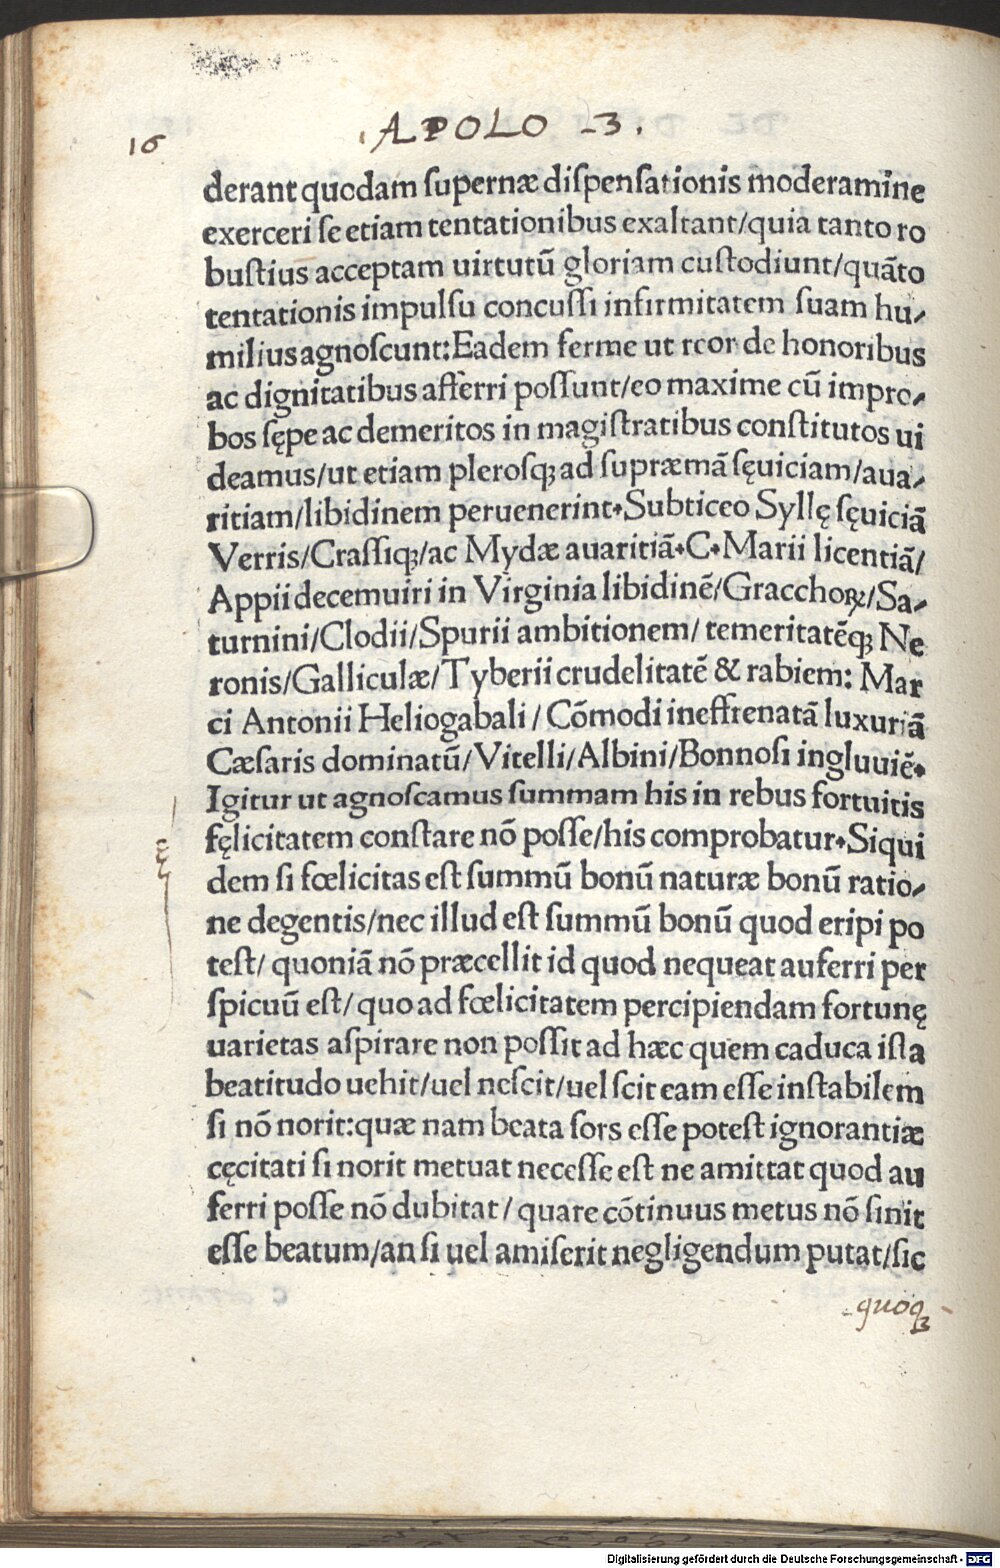 16
.APOLO -3.
derant quodam ſupernæ diſpenſationis moderamine
exerceri ſe etiam tentationibus exaltant/quia tanto ro
buſtius acceptam uirtutū gloriam cuſtodiunt/quāto
tentationis impulſu concuſſi infirmitatem ſuam hu⸗
milius agnoſcunt:Eadem ferme ut reor de honoribus
ac dignitatibus afferri poſſunt/eo maxime cū impro⸗
bos ſępe ac demeritos in magiſtratibus conſtitutos ui
deamus/ut etiam pleroſqꝫ ad ſupræmā ſęuiciam/aua⸗
ritiam/libidinem peruenerint.Subticeo Syllę ſęuiciā
Verris/Craſſiqꝫ/ac Mydæ auaritiā.C.Marii licentiā/
Appii decemuiri in Virginia libidinē/Gracchoꝝ/Sa⸗
turnini/Clodii/Spurii ambitionem/temeritatēqꝫ Ne
ronis/Galliculæ/Tyberii crudelitatē & rabiem: Mar
ci Antonii Heliogabali/Cōmodi ineffrenatā luxuriā
Cæſaris dominatū/Vitelli/Albini/Bonnoſi ingluuiē.
Igitur ut agnoſcamus ſummam his in rebus fortuitis
fęlicitatem conſtare nō poſſe/his comprobatur.Siqui
dem ſi fœlicitas eſt ſummū bonū naturæ bonū ratio⸗
ne degentis/nec illud eſt ſummū bonū quod eripi po
teſt/ quoniā nō præcellit id quod nequeat auferri per
ſpicuū eſt/quo ad fœlicitatem percipiendam fortunę
uarietas aſpirare non poſſit ad hæc quem caduca iſta
beatitudo uehit/uel neſcit/uel ſcit eam eſſe inſtabilem
ſi nō norit:quæ nam beata ſors eſſe poteſt ignorantiæ
cęcitati ſi norit metuat neceſſe eſt ne amittat quod au
ferri poſſe nō dubitat/ quare cōtinuus metus nō ſinit
eſſe beatum/an ſi uel amiſerit negligendum putat/ſic
quoqꝫ
Digitalisierung gefördert durch die Deutsche Forschungsgemeinschaft - DFG